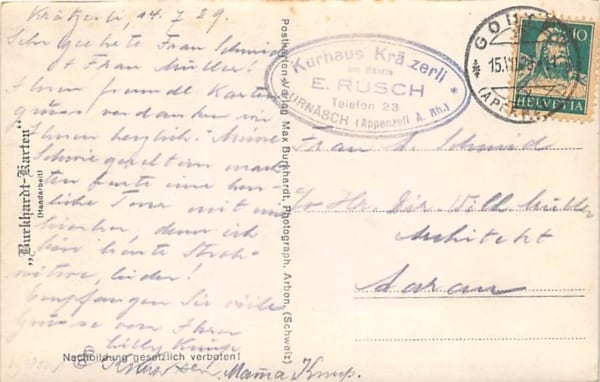 Krätzerli, 14.7.29.
Sehr geehrte Frau Schmid
& Frau Müller!
Ihren freundl. Karten
gruss verdanken wir
Ihnen herzlich. Meine
Schwiegereltern
heute eine
liche Tour mit
denn ich
bin heute Stroh-
witwe, leider!
Empfangen Sie viele
Grüsse von Ihrer
Lilly Knup
Mama Knup.
„Burkhardt-Karten"
(Handarbeit)
Nachbildung gesetzlich verboten!
Postkarten-Verlag Max Burkhardt, Photograph, Arbon, (Schweiz)
Kurhaus Kräzerli
am Säntis
E. RUSCH
Telefon 23
URNÄSCH (Appenzell A. Rh.)
15.VII.29
HELVETIA
10
Frau A. Schmid
c/o Hr. Dir. Will. Müller
Architekt
Aarau